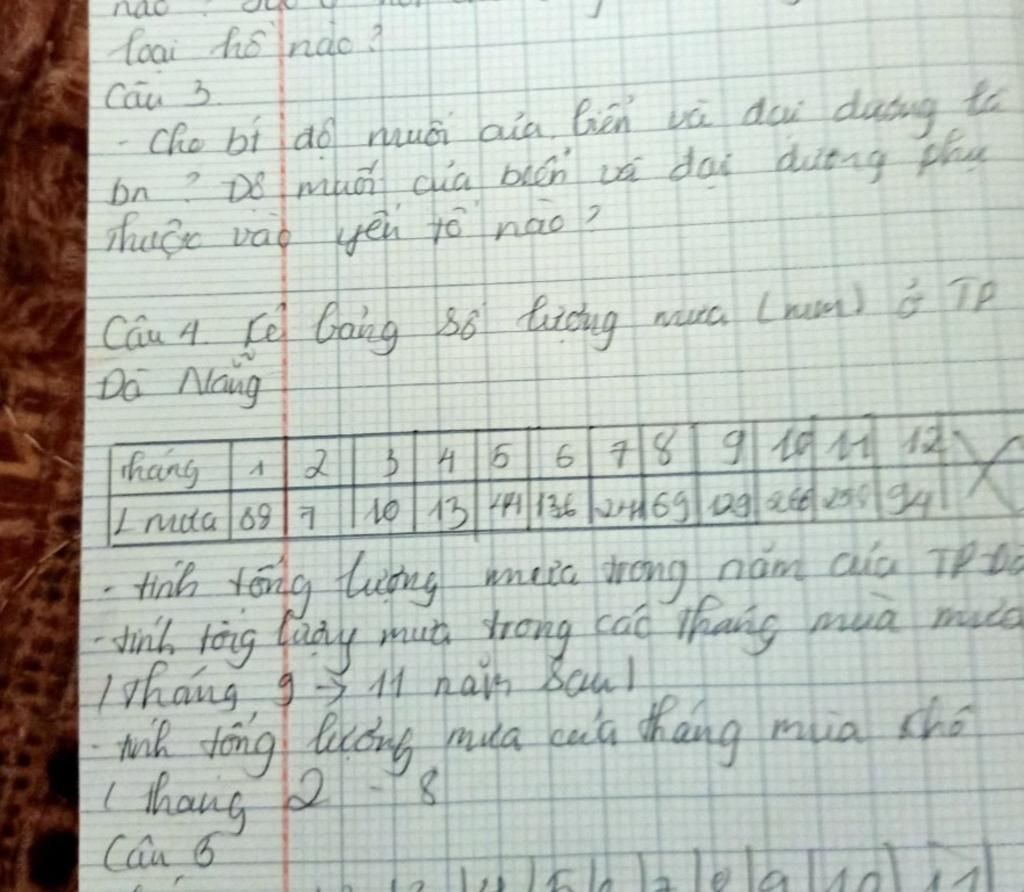 loại hồ nào?
Câu 3.
- Cho bí độ muối của biển và đại dương là
bn? Độ muối của biển và đại dương phụ
thuộc vào yếu tố nào?
Câu 4. Kẻ bảng số lượng mưa (mm) ở TP
Đà Nẵng
Tháng 1 2 3 4 5 6 7 8 9 10 11 12
L mưa 7 10 13 136 69 129 94
- tính tổng lượng mưa trong năm của TP Đà
- tính tổng lượng mưa trong các tháng mùa mưa
(tháng 9 → 11 năm sau)
- tính tổng lượng mưa của tháng mùa khô
( tháng 2 - 8
Câu 5